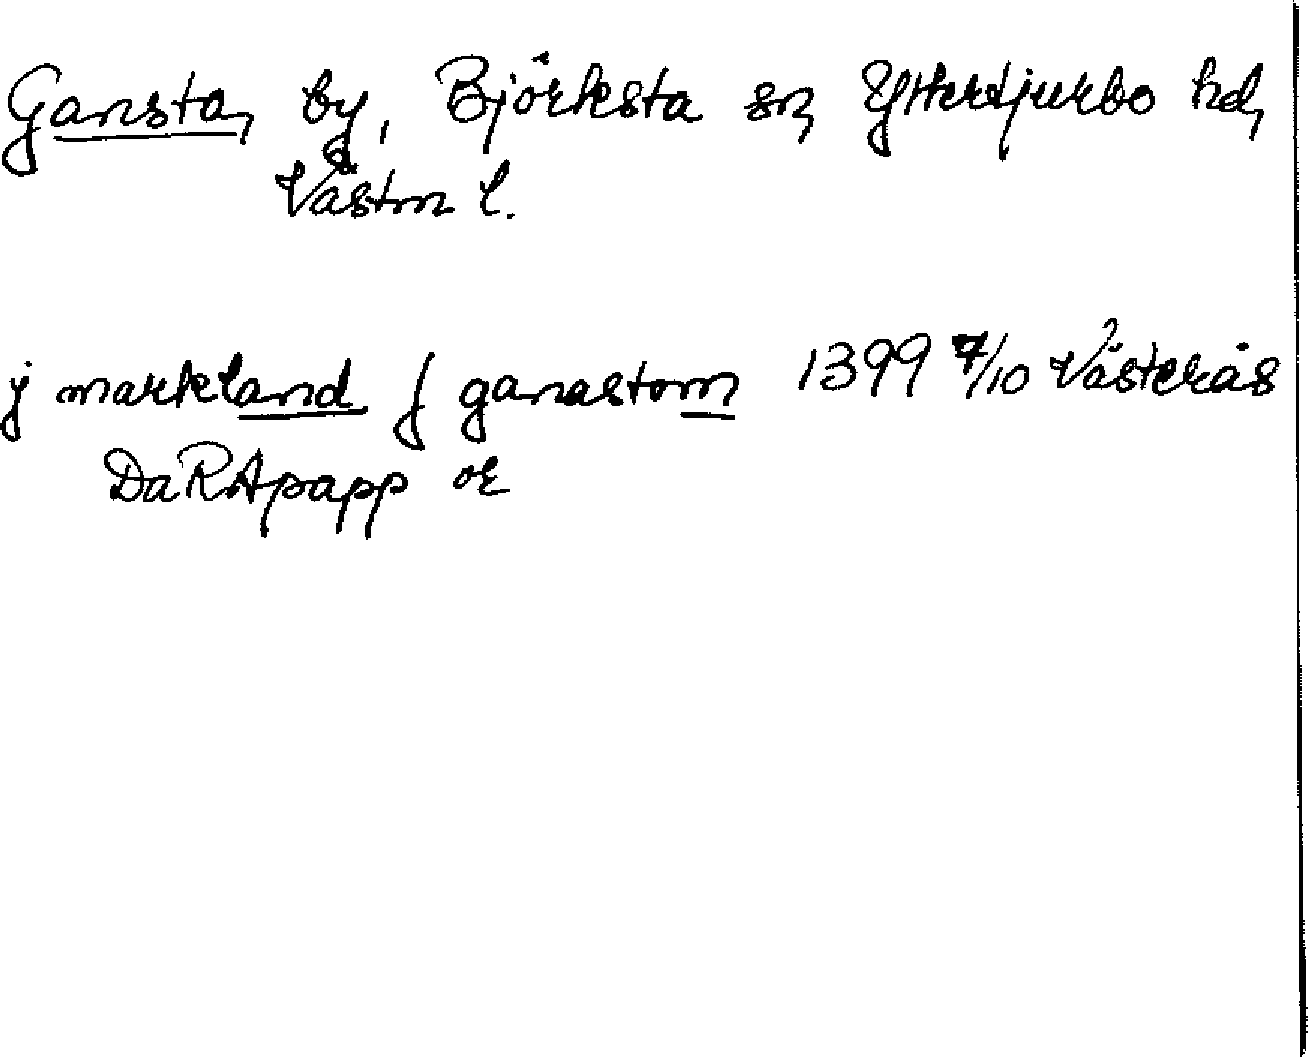 Gansta, by, Björksta sn, Yttertjurbo hd,
Västm l.
j markland j ganastom 1399 7/10 Västerås
DaRApapp or